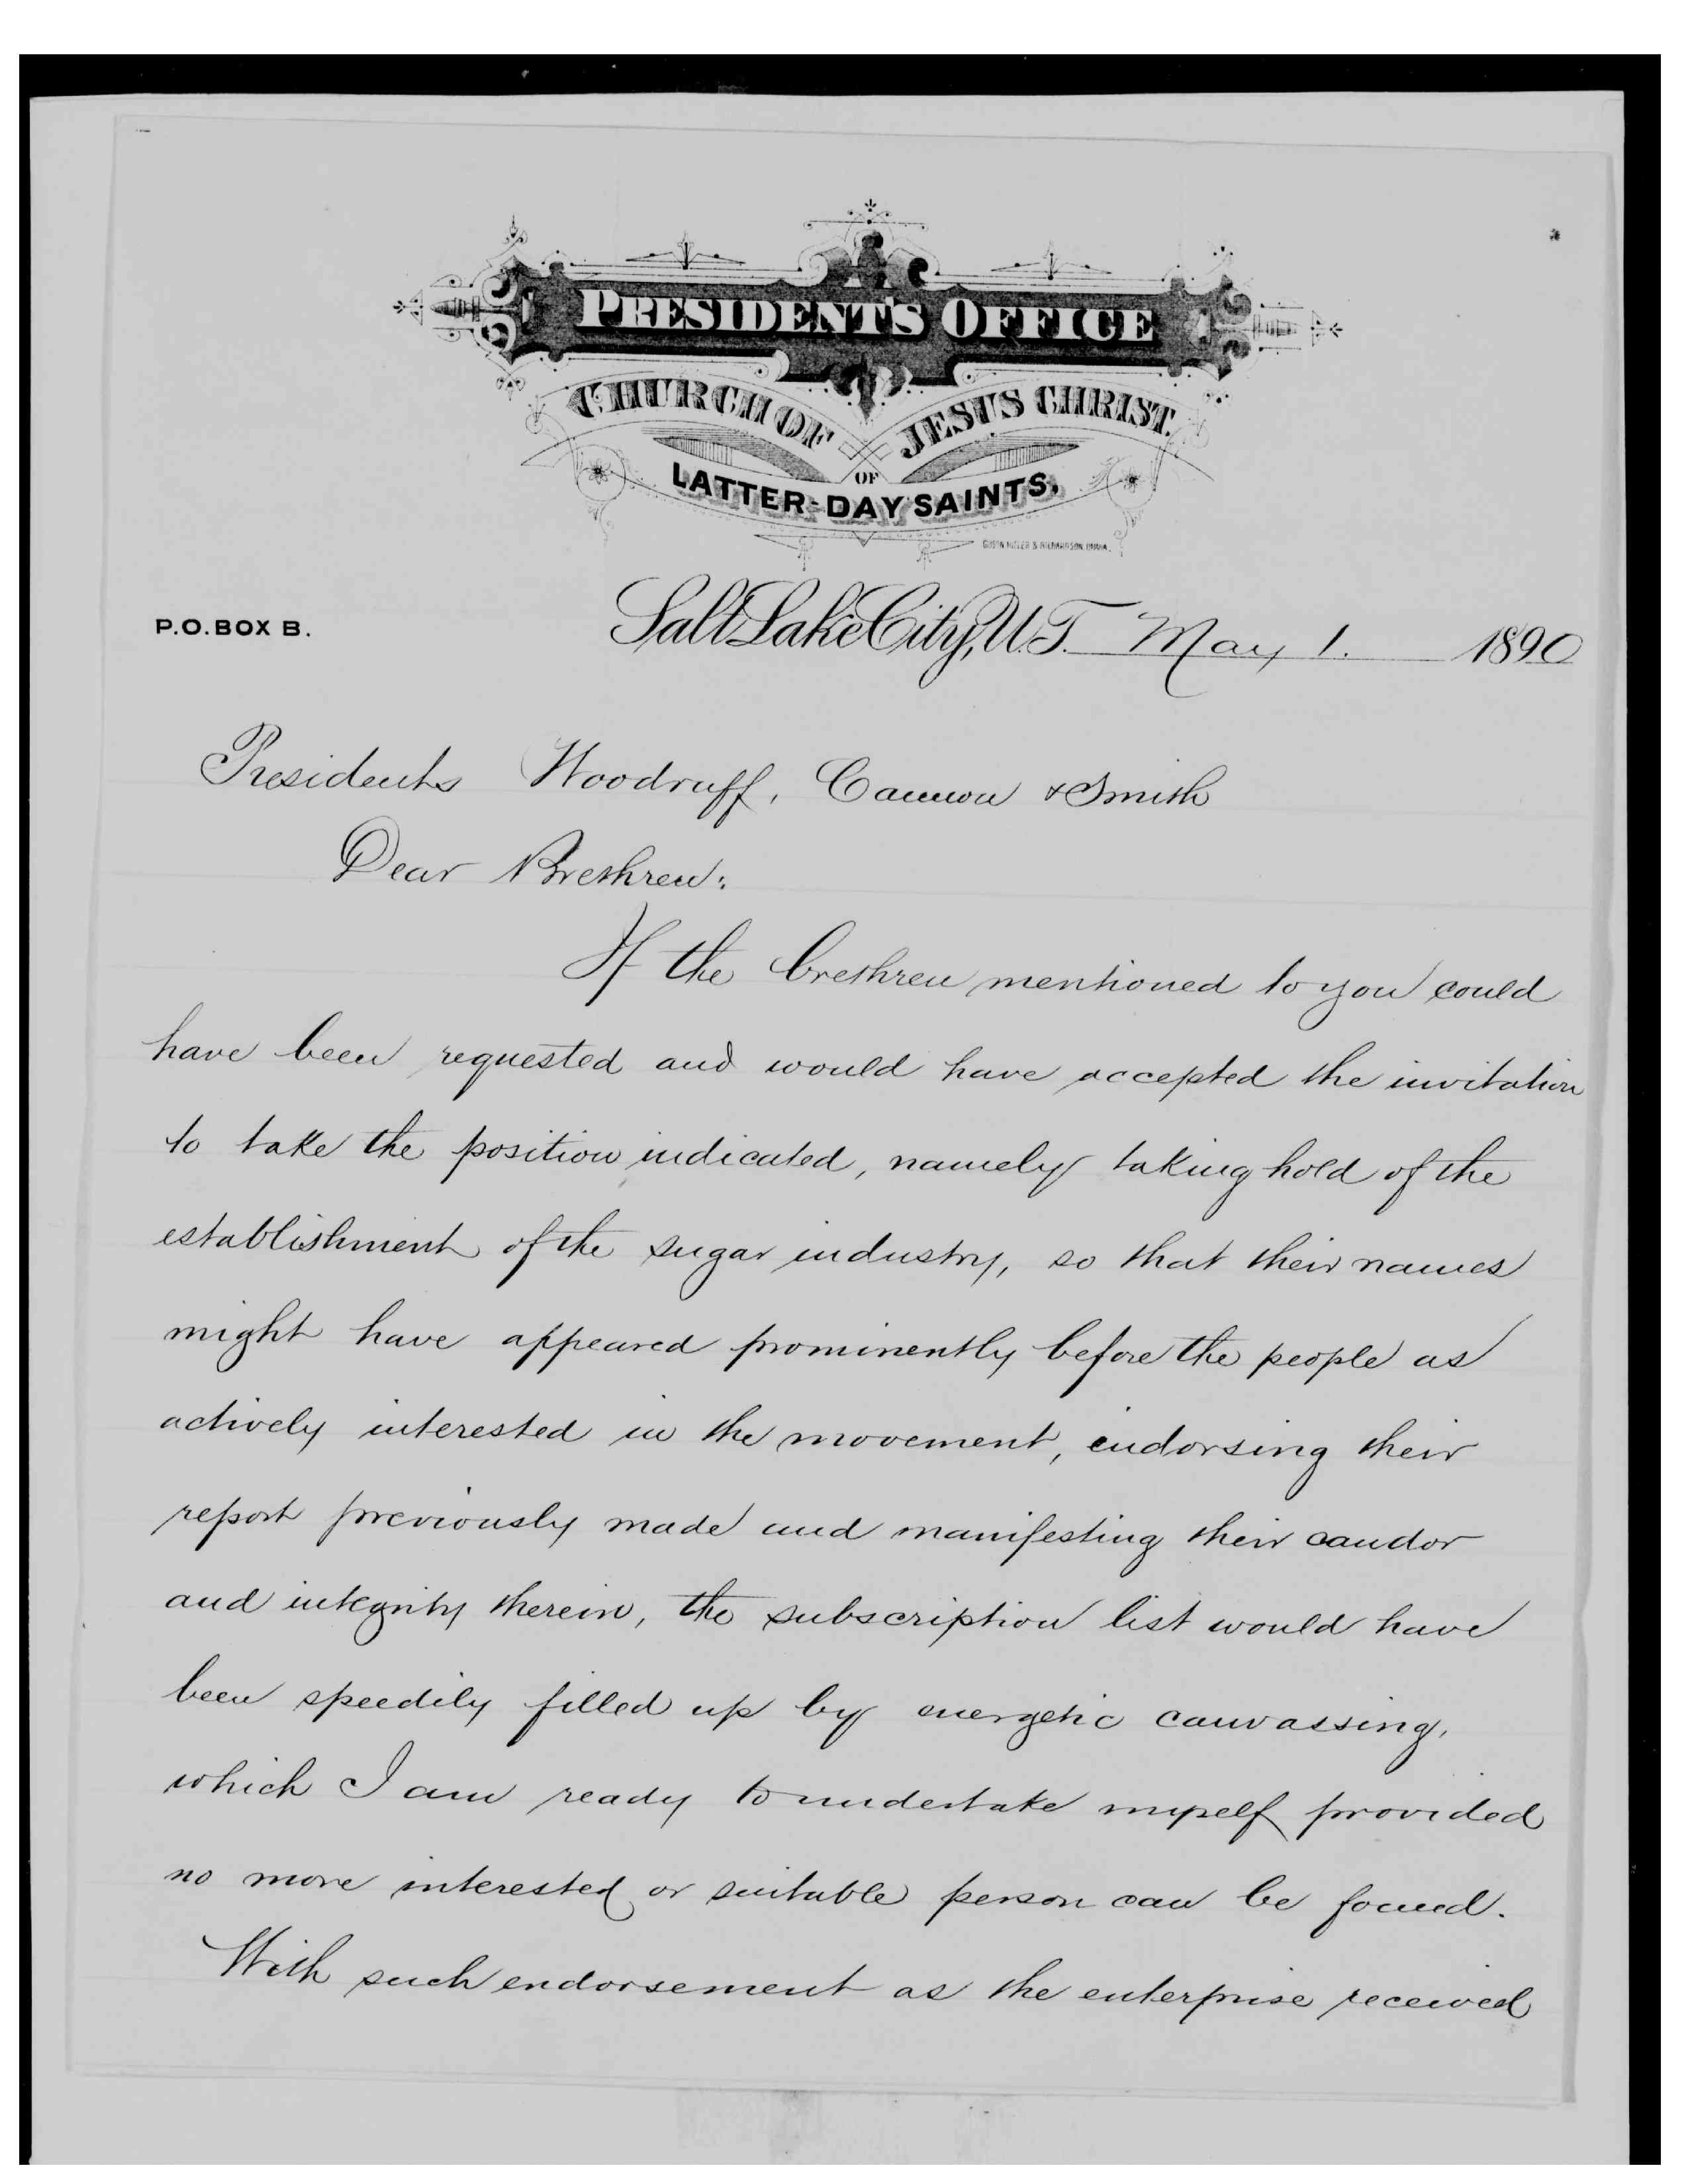 PRESIDENT'S OFFICE
CHURCH OF JESUS CHRIST
OF
LATTER-DAY SAINTS.
P.O. BOX B.
Salt Lake City, U.T. May 1. 1890
Presidents Woodruff, Cannon & Smith
Dear Brethren:
If the brethren mentioned to you could
have been requested and would have accepted the invitation
to take the position indicated, namely taking hold of the
establishment of the sugar industry, so that their names
might have appeared prominently before the people as
actively interested in the movement, endorsing their
report previously made and manifesting their candor
and integrity therein, the subscription list would have
been speedily filled up by energetic canvassing,
which I am ready to undertake myself provided
no more interested or suitable person can be found.
With such endorsement as the enterprise received